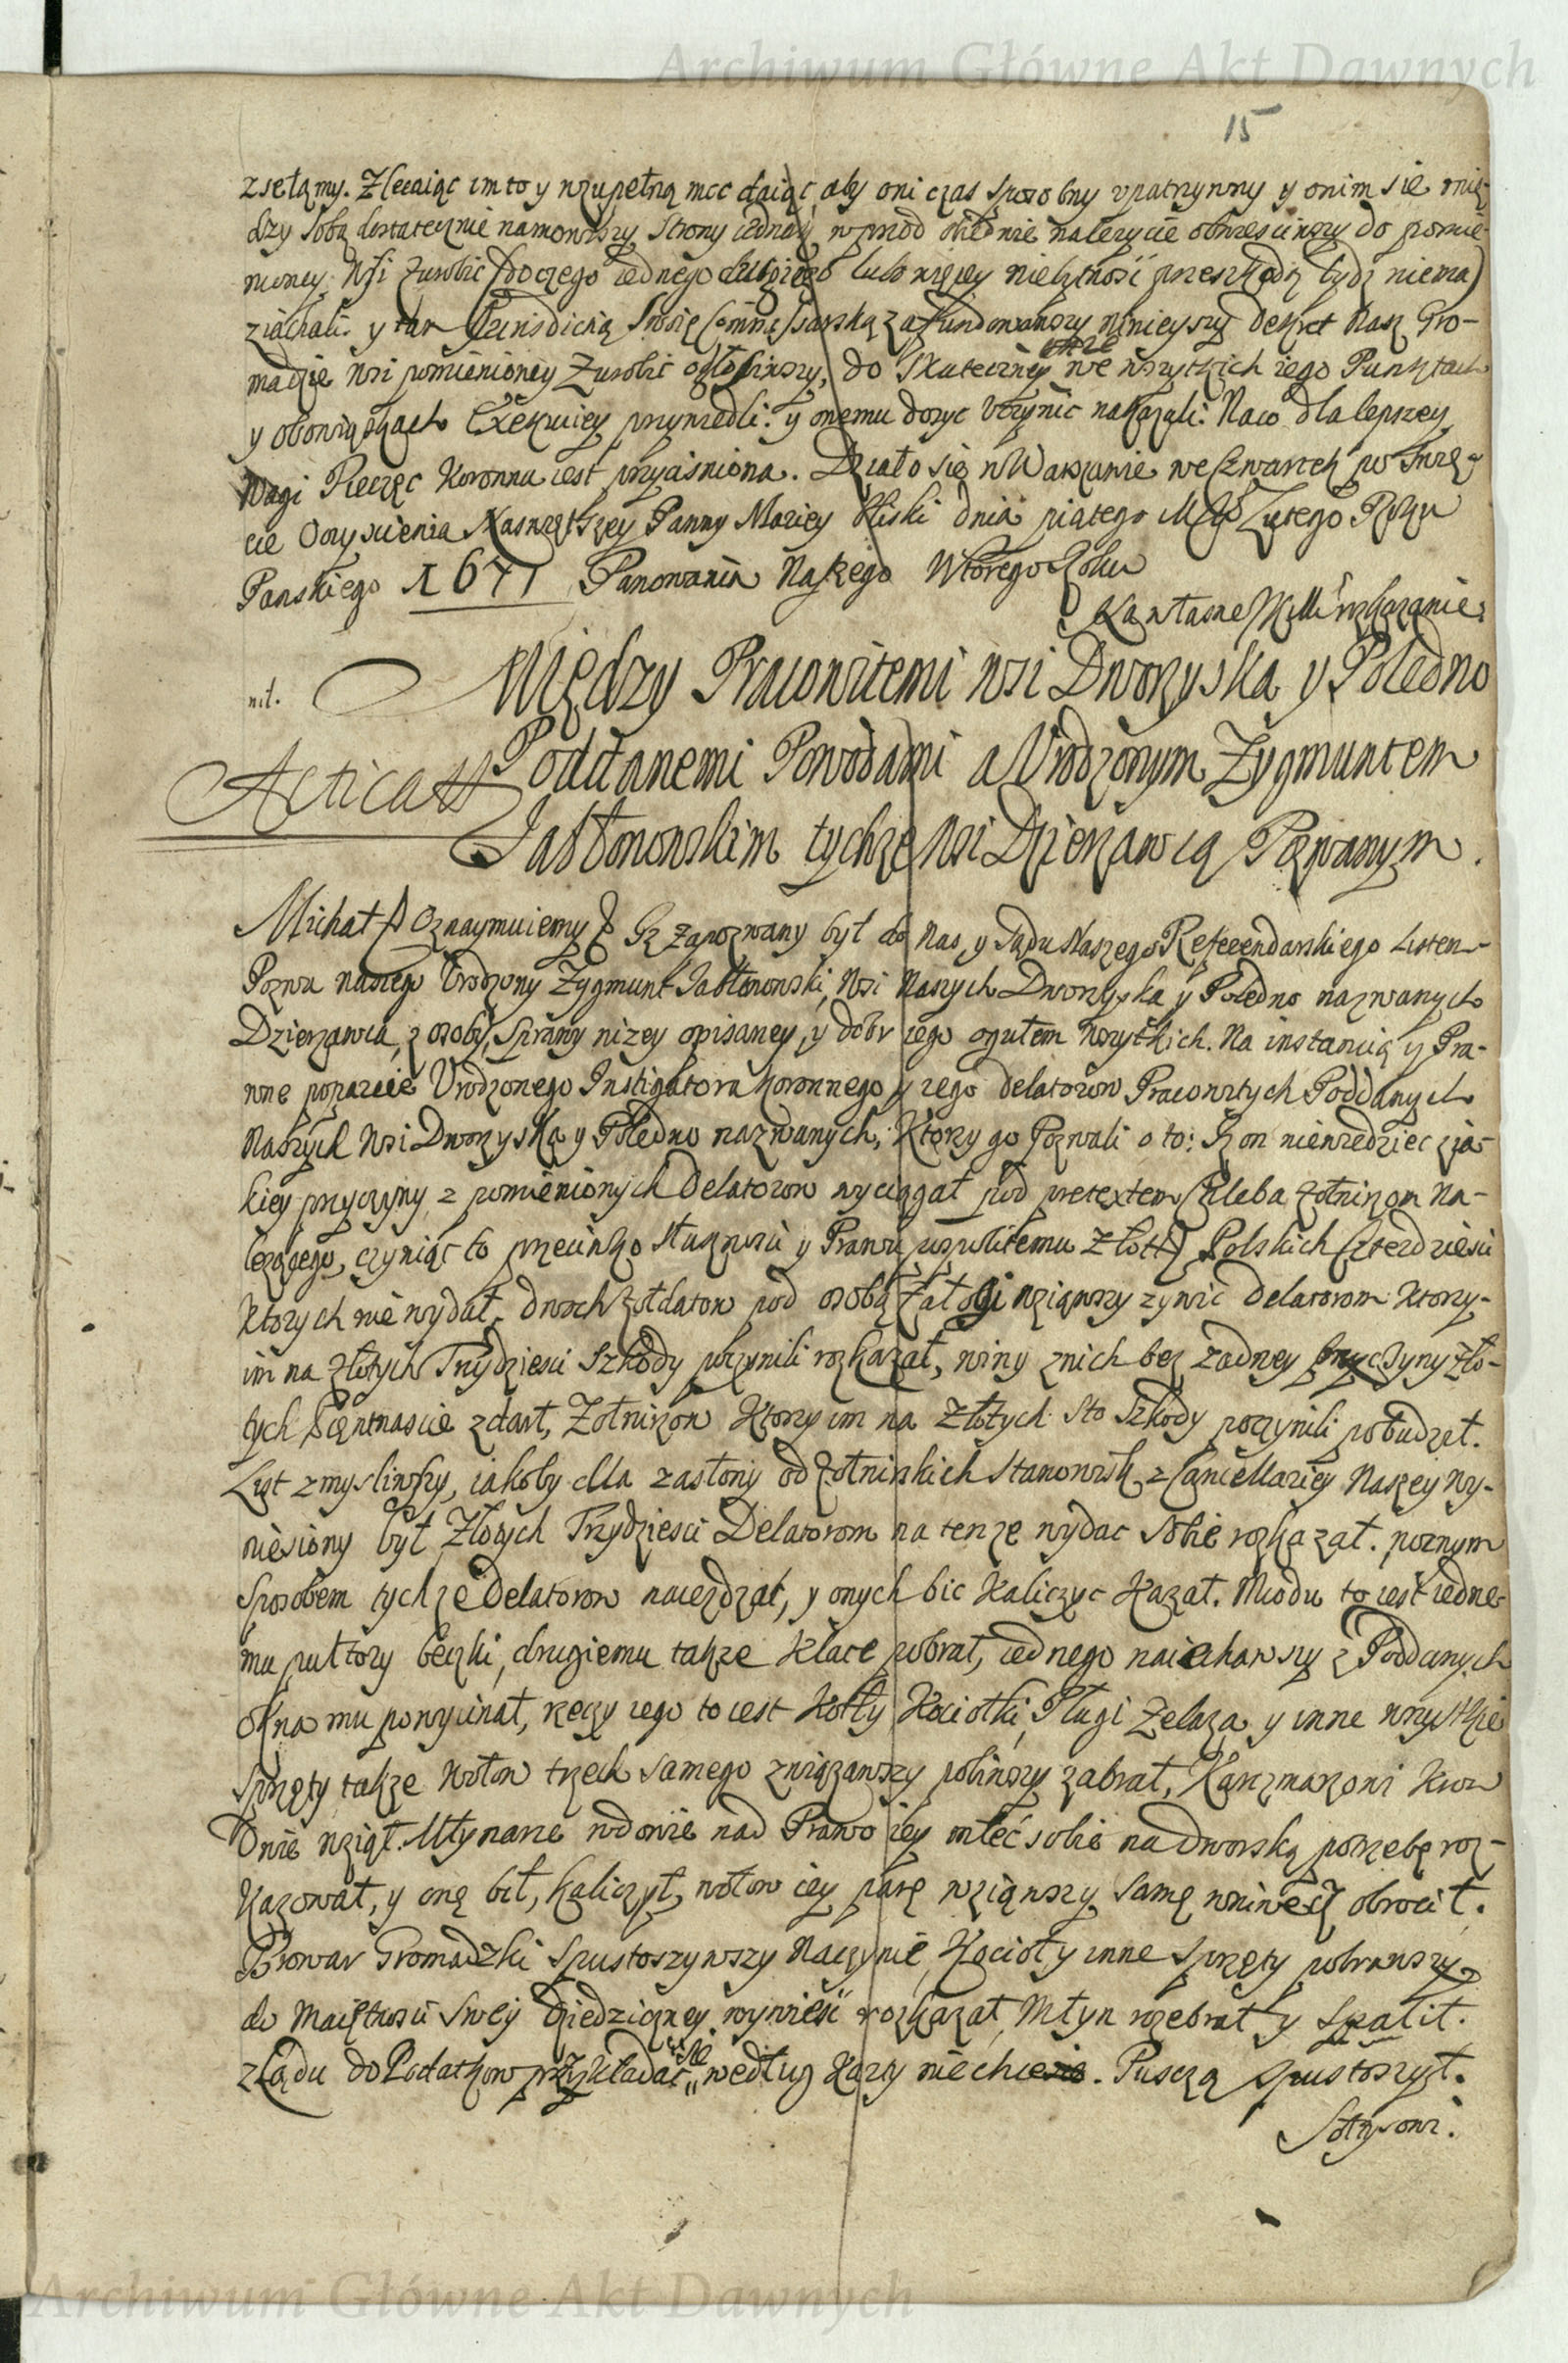 Archiwum Główne Akt Dawnych
15
zsełamy. Zlecaiąc im to y zupełną mcc daiąc, aby oni czas sposobny upatrzywszy y onim się mię-
dzy sobą dostatecznie namowiwszy strony iednak wprzod należycie obwieściwszy do pomie-
nioney Wsi Zurobic (do czego iednego drugiego lub więcey niebytność przeszkodą bydz niema)
ziachali. y tam Jurisdictią Swoię Commissarską zafundowawszy ninieyszy Dekret Nasz Gro-
madzie Wsi pomienioney Zurobic ogłosiwszy, do Skuteczney we wszytkich iego Punktach
y obowiązkach Exekuciey przywiedli. y onemu dosyc Uczynic nakazali. Naco dla lepszey
Wagi Pieczęc Koronna iest przyciśniona. Działo się w Warszawie we Czwartek po Swię-
cie Oczyscienia Naswiętszey Panny Mariey bliski dnia piątego Mca Lutego Roku
Panskiego 1671 Panowania Naszego Wtorego Roku
Na własne JKMci rozkazanie
Między Pracowitemi wsi Dworzyska y Poledno
Poddanemi Powodami a Urodzonym Zygmuntem
Jabłonowskim tychze Wsi Dzierzawcą Pozwanym.
Michał Oznaymuiemy Iz zapozwany był do Nas, y Sądu Naszego Referendarskiego Listem
Pozwu naszego Urodzony Zygmunt Jabłonowski, Wsi Naszych Dworzyska y Poledno nazwanych
Dzierzawca, z osoby, Sprawy nizey opisaney, y dobr iego ogułem wszytkich. Na instancią y Pra-
wne poparcie Urodzonego Instigatora Koronnego y iego delatorow Pracowitych Poddanych
Naszych Wsi Dworzyska y Poledno nazwanych, Ktorzy go Pozwali o to: Iz on niewiedziec zia-
kiey przyczyny z pomienionych Delatorow wyciągał pod pretextem Chleba Zołnirzom Na-
lezącego, czyniąc to przeciwko słusznosci y Prawu pospolitemu Złotych Polskich Czterdziesci
Ktorych nie wydał, dwoch Zołdatow pod osobą Załogi wziąwszy zywic delatorom Ktorzy
im na złotych Trzydziesci Szkody uczynili rozkazał, winy znich bez zadney przyczyny zło-
tych Piętnascie zdarł, Zołnirzow Ktorzy im na Złotych Sto Szkody poczynili pobudzał.
List zmysliwszy, iakoby dla zasłony od Zołnirskich Stanowisk z Cancellariey Naszey wy-
niesiony był Złotych Trzydziesci Delatorom na tenze wydac sobie rozkazał. roznym
Sposobem tychze Delatorow naiezdzał, y onych bic kaliczyc Kazał. Miodu to iest iedne-
mu pułtory beczki, drugiemu takze Klacę pobrał, iednego naiechawszy z Poddanych
Okna mu powycinał, rzeczy iego to iest Kotły Kociołki, Pługi Zelaza y inne wszystkie
Sprzęty takze Wołow trzech samego związawszy pobiwszy zabrał, Karczmarzowi Krow
Dwie wziął. Młynarce wdowie nad Prawo iey mleć sobie na dworską potrzebę roz-
Kazował, y onę bił, kaliczył, wołow iey parę wziąwszy samę wniwecz obrocił.
Browar Gromadzki Spustoszywszy Naczynie, Kocioł y inne Sprzęty pobrawszy,
do Maiętnosci Swey Dziedziczney wywieść rozkazał, Młyn rozebrał y spalił.
zsądu do Podatkow przykładać się według Karty niechce. Puszczą spustoszył.
Sołtysowi.
Archiwum Główne Akt Dawnych